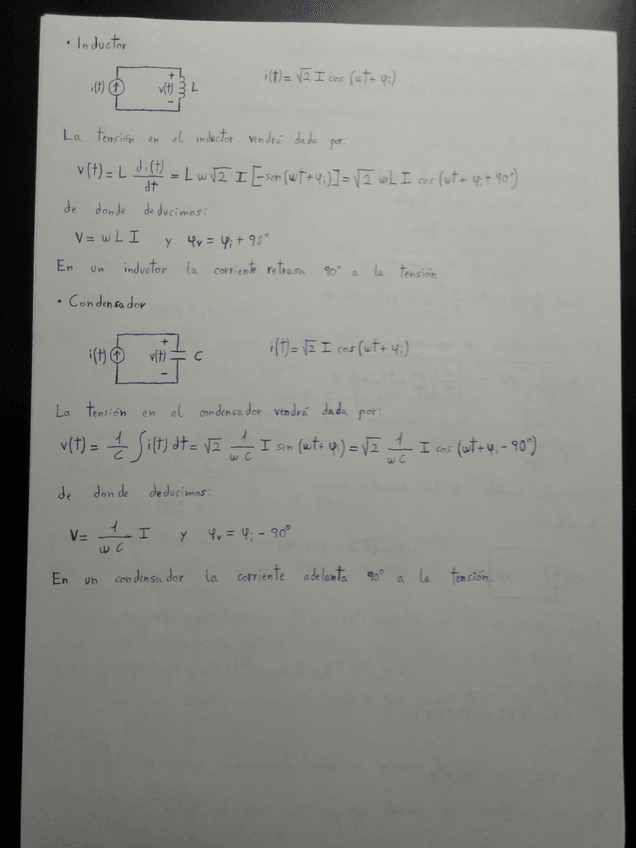 • Inductor
i(t) + v(t) - L i(t)= √2 I cos (ωt+φi)
La tensión en el inductor vendrá dada por:
v(t)= L di(t)/dt = L ω √2 I [-sen(ωt+φi)]= √2 ωL I cos (ωt+φi+90°)
de donde deducimos:
V= ω L I y φv= φi+90°
En un inductor la corriente retrasa 90° a la tensión
• Condensador
i(t) + v(t) - C i(t)=√2 I cos(ωt+φi)
La tensión en el condensador vendrá dada por:
v(t)= 1/C ∫i(t) dt= √2 1/ωC I sen (ωt+φi)=√2 1/ωC I cos (ωt+φi-90°)
de donde deducimos:
V= 1/ωC I y φv= φi-90°
En un condensador la corriente adelanta 90° a la tensión.